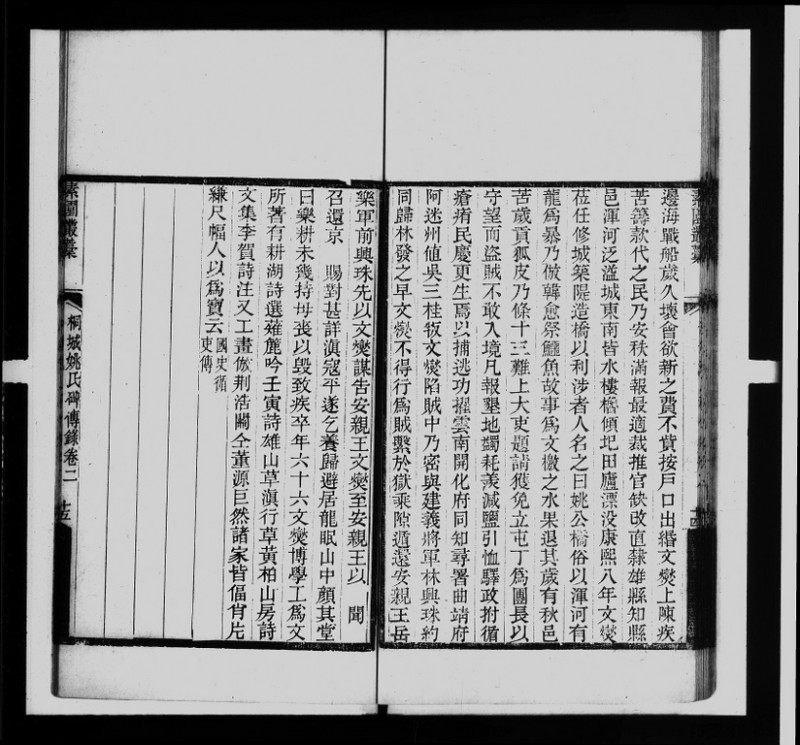 邊海戰船歲久壞會欲新之費不貲按戶口出緡文燮上陳疾
苦籌款代之民乃安秩滿報最適裁推官缺改直隸雄縣知縣
邑渾河泛溢城東南皆水樓櫓傾圮田廬漂沒康熙八年文燮
莅任修城築隄造橋以利涉者人名之曰姚公橋俗以渾河有
龍為暴乃倣韓愈祭鱷魚故事為文檄之水果退其歲有秋邑
苦歲貢狐皮乃條十三難上大吏題請獲免立屯丁為團長以
守望而盜賊不敢入境凡報墾地蠲耗羨減鹽引恤驛政拊循
瘡痏民慶更生焉以捕逃功擢雲南開化府同知尋署曲靖府
阿迷州值吳三桂叛文燮陷賊中乃密與建義將軍林興珠約
同歸林發之早文燮不得行為賊繫於獄乘隙遁還安親王岳
樂軍前興珠先以文燮謀告安親王文燮至安親王以　聞
召還京　賜對甚詳滇寇平遂乞養歸避居龍眠山中顏其堂
曰樂耕未幾持母喪以毀致疾卒年六十六文燮博學工為文
所著有耕湖詩選薙簏吟壬寅詩雄山草滇行草黃柏山房詩
文集李賀詩注又工畫倣荊浩關仝董源巨然諸家皆偪肖片
縑尺幅人以為寶云國史循
吏傳
桐城姚氏碑傳錄卷二
十五